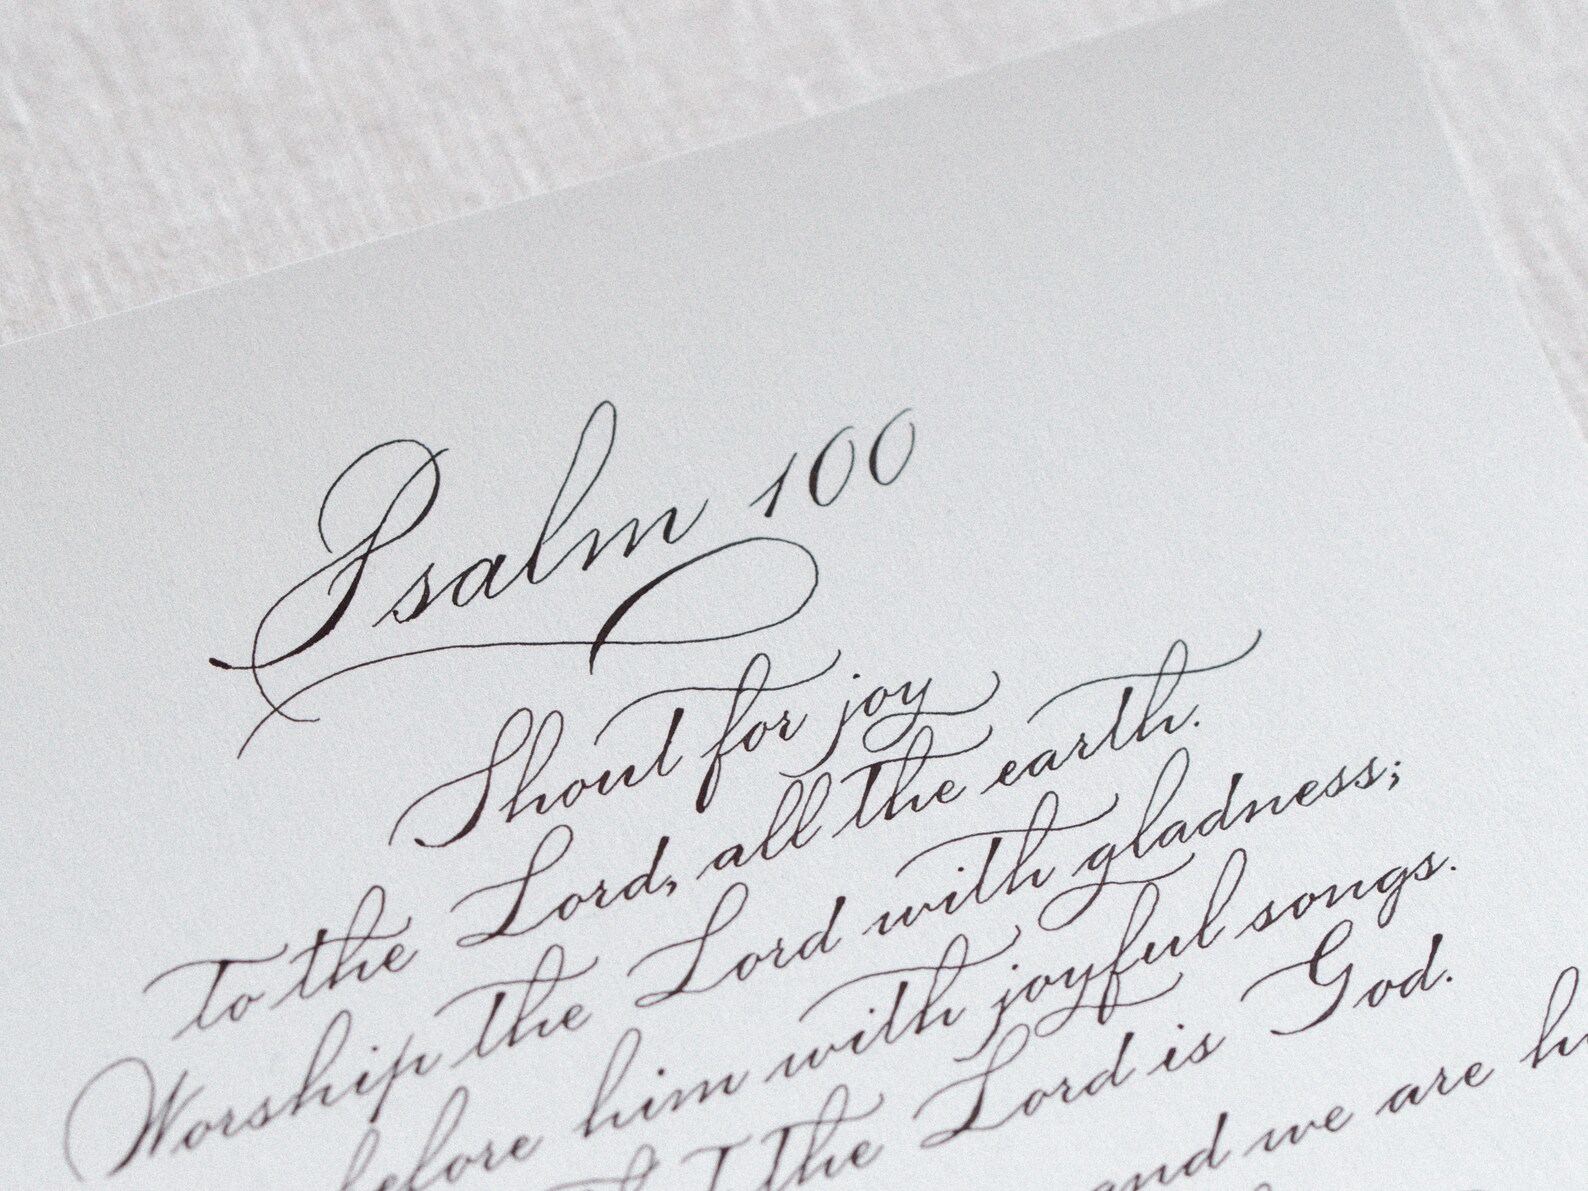 Psalm 100
Shout for joy
To the Lord, all the earth.
Worship the Lord with gladness;
before him with joyful songs.
the Lord is God.
and we are